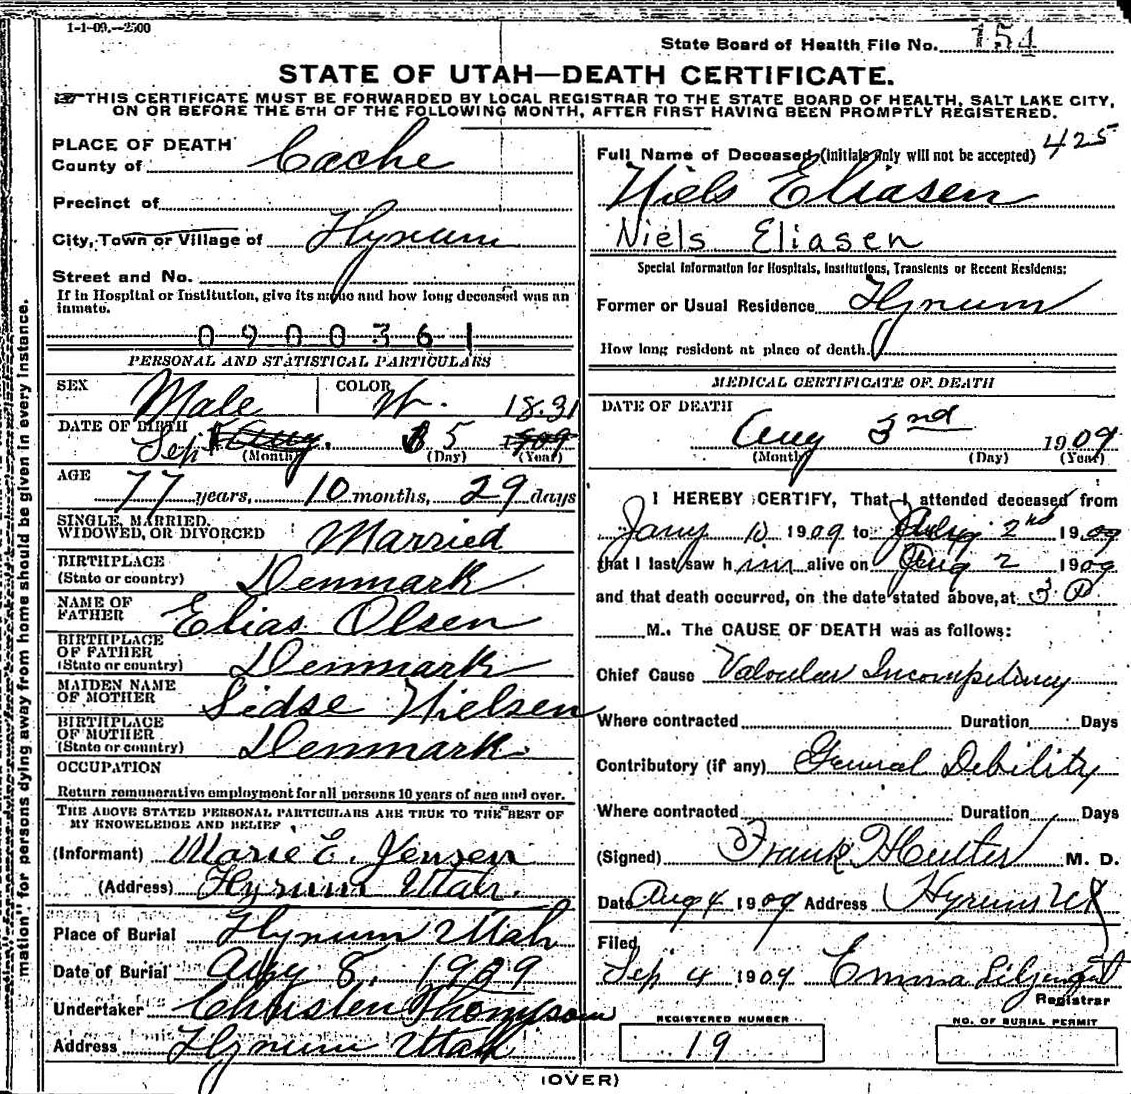 1-1-09.--2500
State Board of Health File No. 154
STATE OF UTAH—DEATH CERTIFICATE.
THIS CERTIFICATE MUST BE FORWARDED BY LOCAL REGISTRAR TO THE STATE BOARD OF HEALTH, SALT LAKE CITY,
ON OR BEFORE THE 5TH OF THE FOLLOWING MONTH, AFTER FIRST HAVING BEEN PROMPTLY REGISTERED.
PLACE OF DEATH
County of Cache
Precinct of
City, Town or Village of Hyrum
Street and No.
If in Hospital or Institution, give its name and how long deceased was an
inmate.
0900361
PERSONAL AND STATISTICAL PARTICULARS
SEX Male COLOR W. 1831
DATE OF BIRTH Sep Aug. 5 1909
(Month) (Day) (Year)
AGE 77 years, 10 months, 29 days
SINGLE, MARRIED,
WIDOWED, OR DIVORCED Married
BIRTHPLACE
(State or country) Denmark
NAME OF
FATHER Elias Olsen
BIRTHPLACE
OF FATHER
(State or country) Denmark
MAIDEN NAME
OF MOTHER Sidse Nielsen
BIRTHPLACE
OF MOTHER
(State or country) Denmark
OCCUPATION
Return remunerative employment for all persons 10 years of age and over.
THE ABOVE STATED PERSONAL PARTICULARS ARE TRUE TO THE BEST OF
MY KNOWLEDGE AND BELIEF
(Informant) Marie E. Jensen
(Address) Hyrum Utah.
Place of Burial Hyrum Utah
Date of Burial Aug 8, 1909
Undertaker Christen Thompson
Address Hyrum Utah
Full Name of Deceased (initials only will not be accepted) 425
Niels Eliasen
Niels Eliasen
Special Information for Hospitals, Institutions, Transients or Recent Residents:
Former or Usual Residence Hyrum
How long resident at place of death.
MEDICAL CERTIFICATE OF DEATH
DATE OF DEATH
Aug 3nd 1909
(Month) (Day) (Year)
I HEREBY CERTIFY, That I attended deceased from
Jany 10 1909 to Aug 2nd 1909
that I last saw him alive on Aug 2 1909
and that death occurred, on the date stated above, at 3 P
M. The CAUSE OF DEATH was as follows:
Chief Cause Valvular Incompetency
Where contracted Duration Days
Contributory (if any) General Debility
Where contracted Duration Days
(Signed) Frank M. D.
Date Aug 4 1909 Address Hyrum Ut
Filed
Sep 4 1909 Emma
Registrar
REGISTERED NUMBER
19
NO. OF BURIAL PERMIT
(OVER)
mation", for persons dying away from home should be given in every instance.